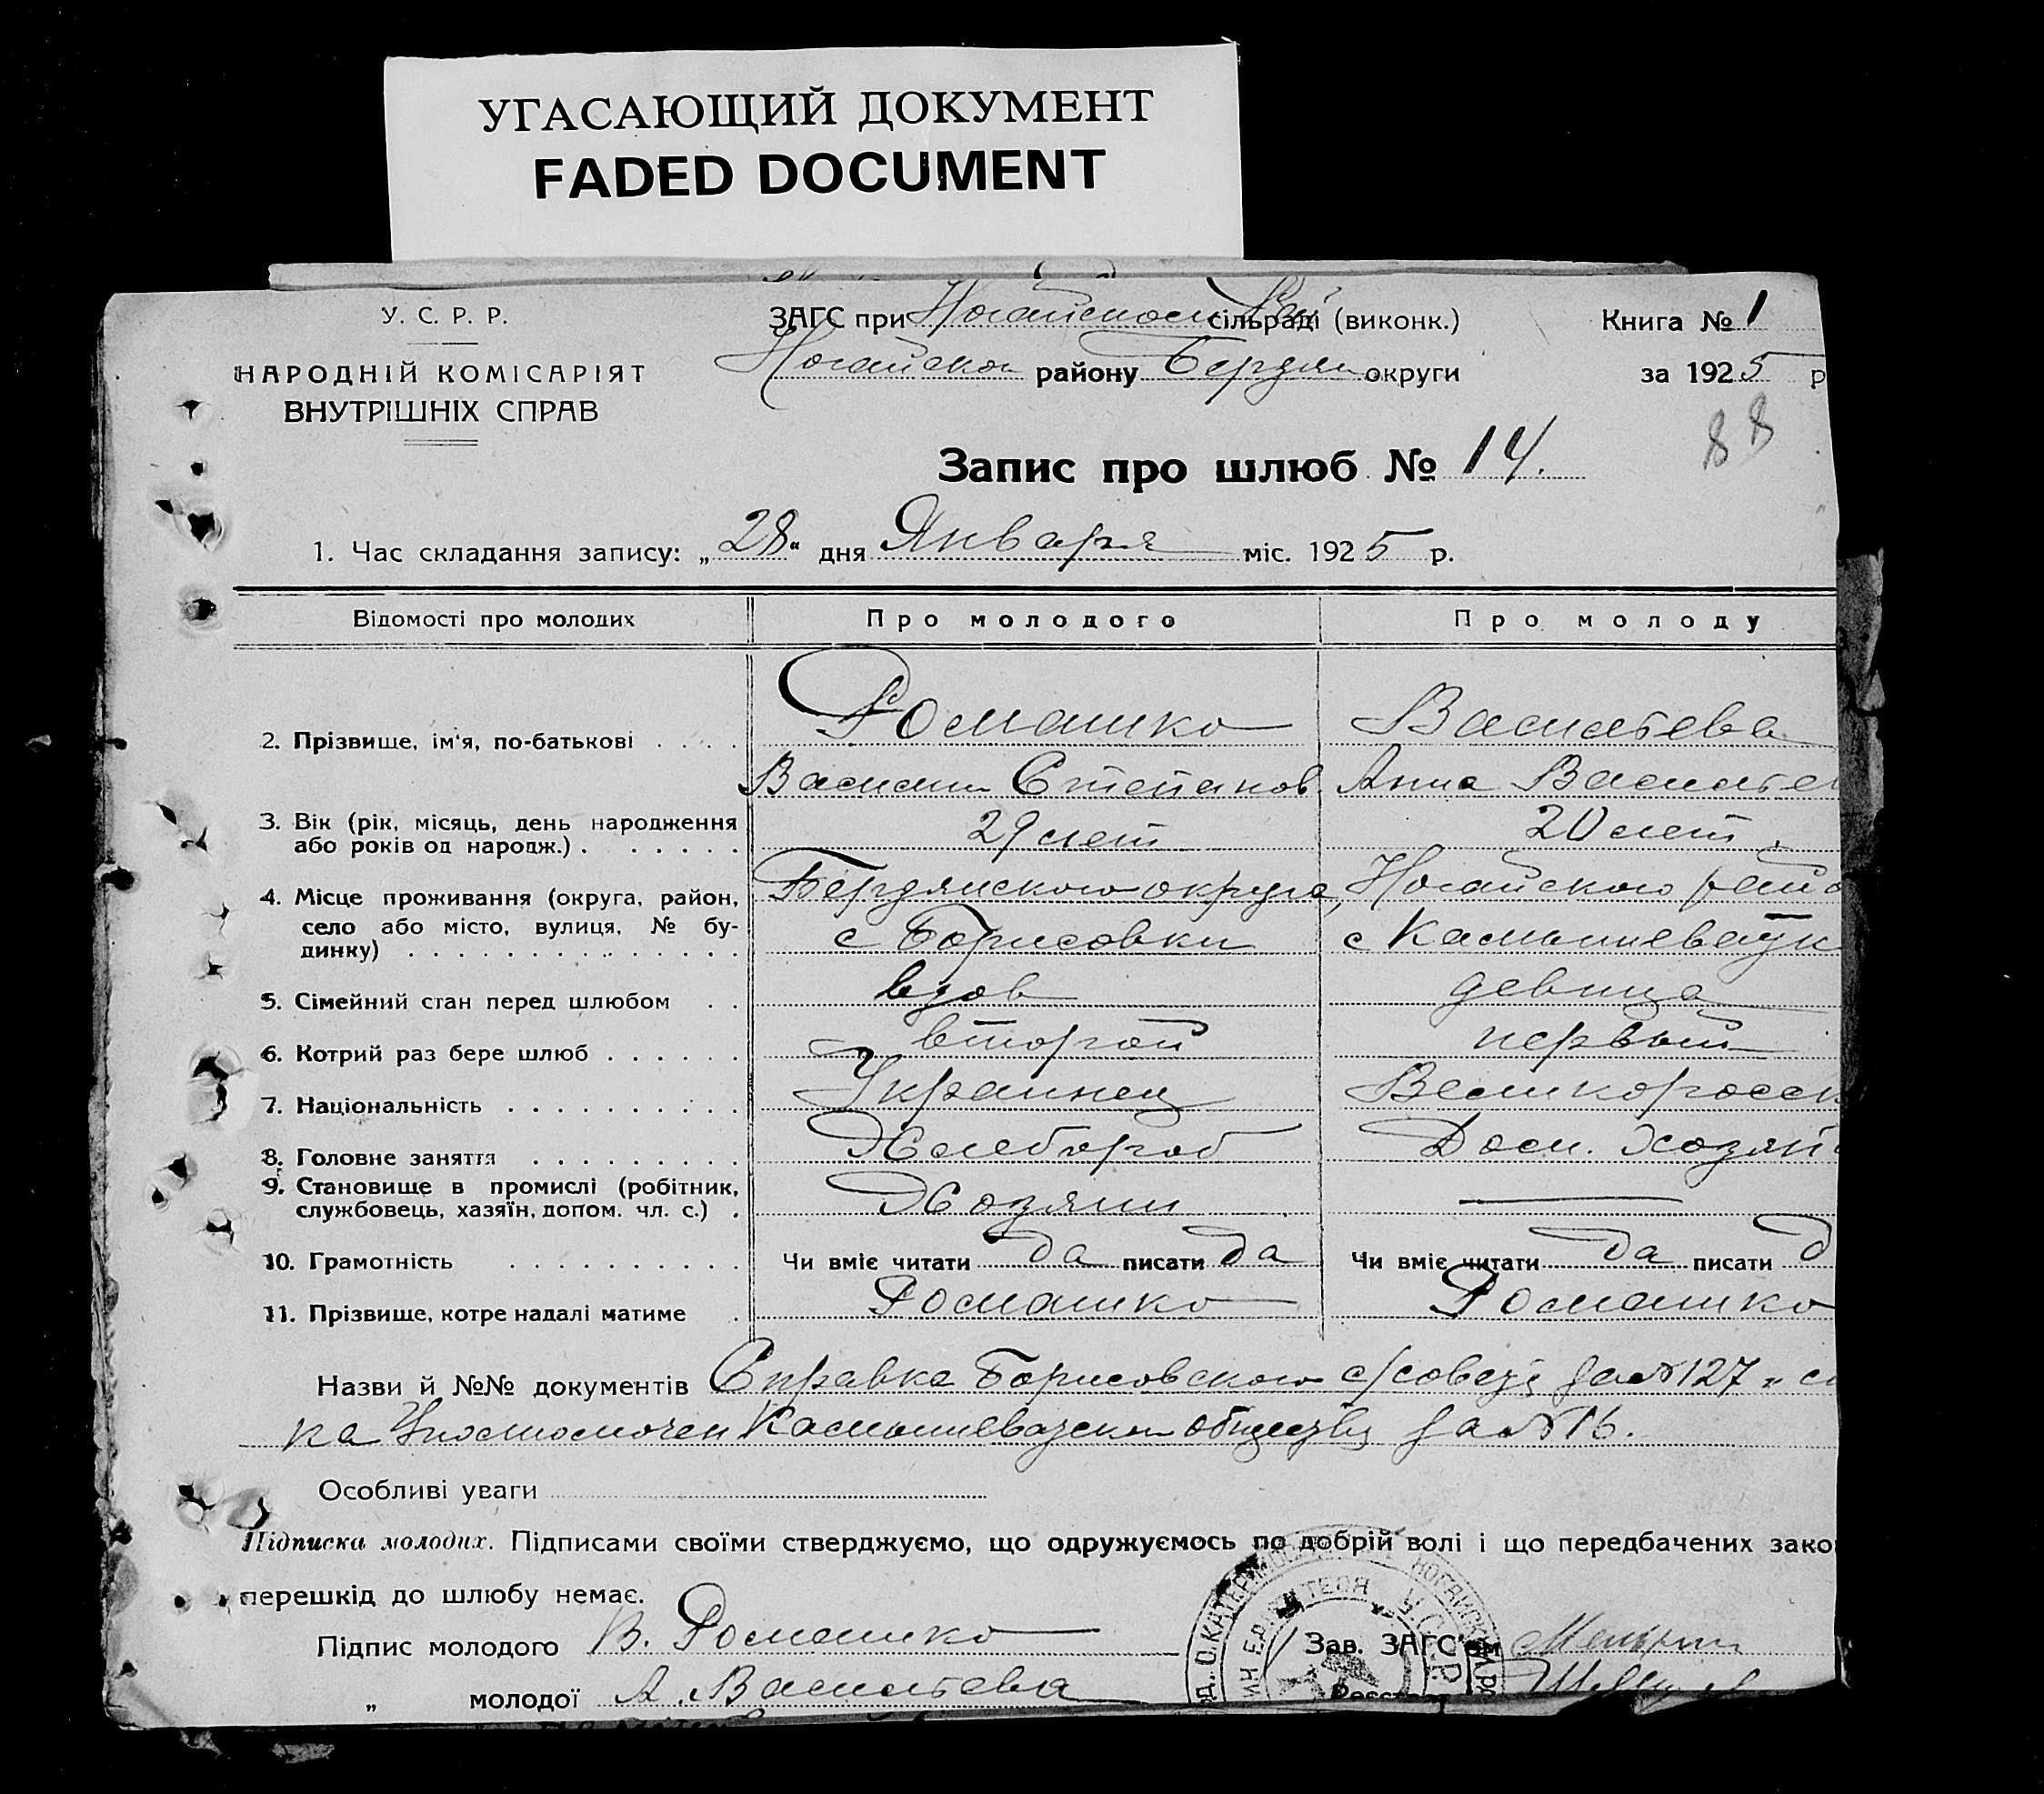 УГАСАЮЩИЙ ДОКУМЕНТ
FADED DOCUMENT
У. С. Р. Р.
НАРОДНІЙ КОМІСАРІЯТ
ВНУТРІШНІХ СПРАВ
ЗАГС при Ногайском Рай сільраді (виконк.)
Ногайском району Бердян округи
Книга № 1
за 1925 р
88
Запис про шлюб № 14.
1. Час складання запису: „28“ дня Января міс. 1925 р.
Відомості про молодих Про молодого Про молоду
2. Прізвище, ім'я, по-батькові . . . . Ромашко Васильева
Василий Степанов. Анна Василье
3. Вік (рік, місяць, день народження
або років од народж.) . . . . . . 29 лет 20 лет.
4. Місце проживання (округа, район, Бердянского округа, Ногайского рай
село або місто, вулиця, № бу-
динку) . . . . . . . . . . . . . . с Борисовки с Камышеватк
5. Сімейний стан перед шлюбом . . вдов девица
6. Котрий раз бере шлюб . . . . . . второй первый
7. Національність . . . . . . . . . . Украинец Великоросс
8. Головне заняття . . . . . . . . . Хлебороб Дом. Хозяй
9. Становище в промислі (робітник,
службовець, хазяїн, допом. чл. с.) . Хозяин —
10. Грамотність . . . . . . . . . . Чи вміє читати да писати да Чи вміє читати да писати д
11. Прізвище, котре надалі матиме . Ромашко Ромашко
Назви й №№ документів Справка Борисовского с/совета за № 127 и с
ка Уполномочен Камышеватского общества за № 16.
Особливі уваги
Підписка молодих. Підписами своїми стверджуємо, що одружуємось по добрій волі і що передбачених зако
перешкід до шлюбу немає.
Підпис молодого В. Ромашко Зав. ЗАГС'ом
„ молодої А. Васильева